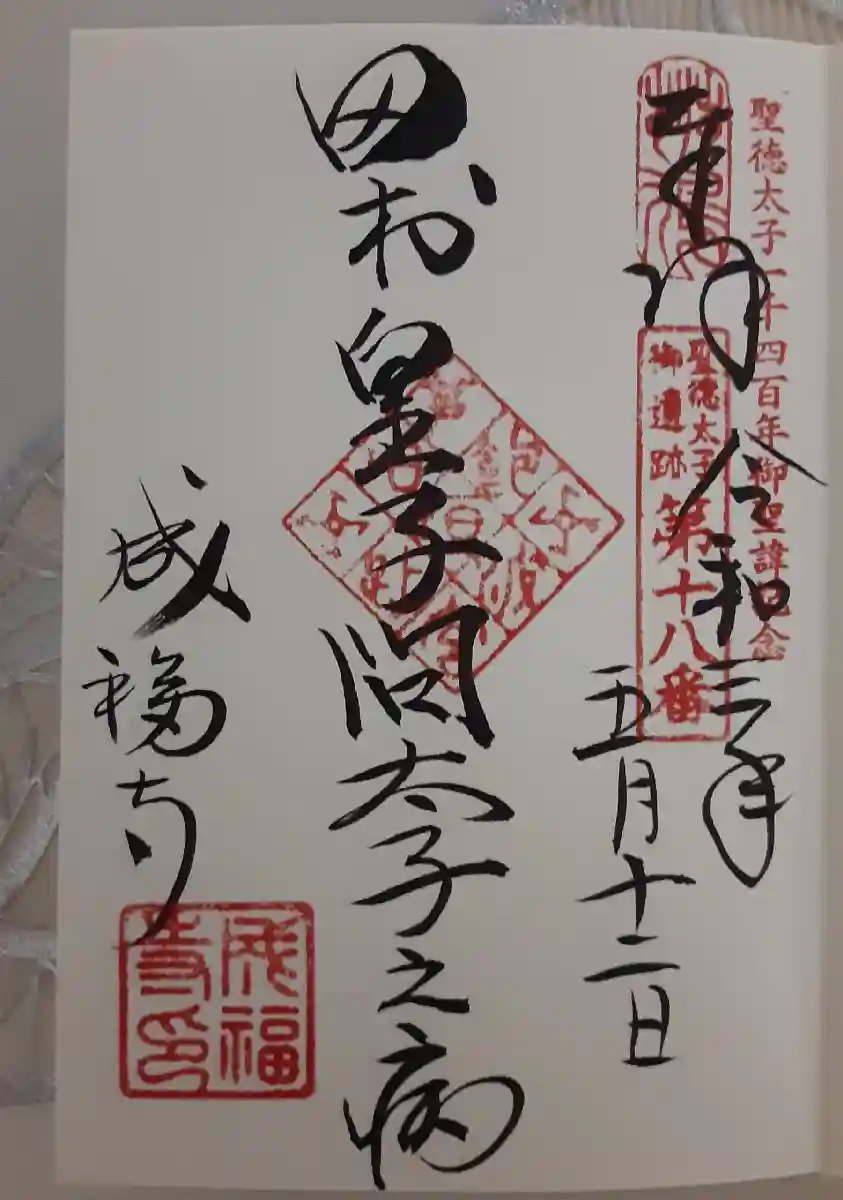 聖徳太子一千四百年御聖諱記念
奉拝
令和三年
聖徳太子
御遺跡
第十八番
五月十二日
田村皇子問太子之病
成福寺
成福
寺印